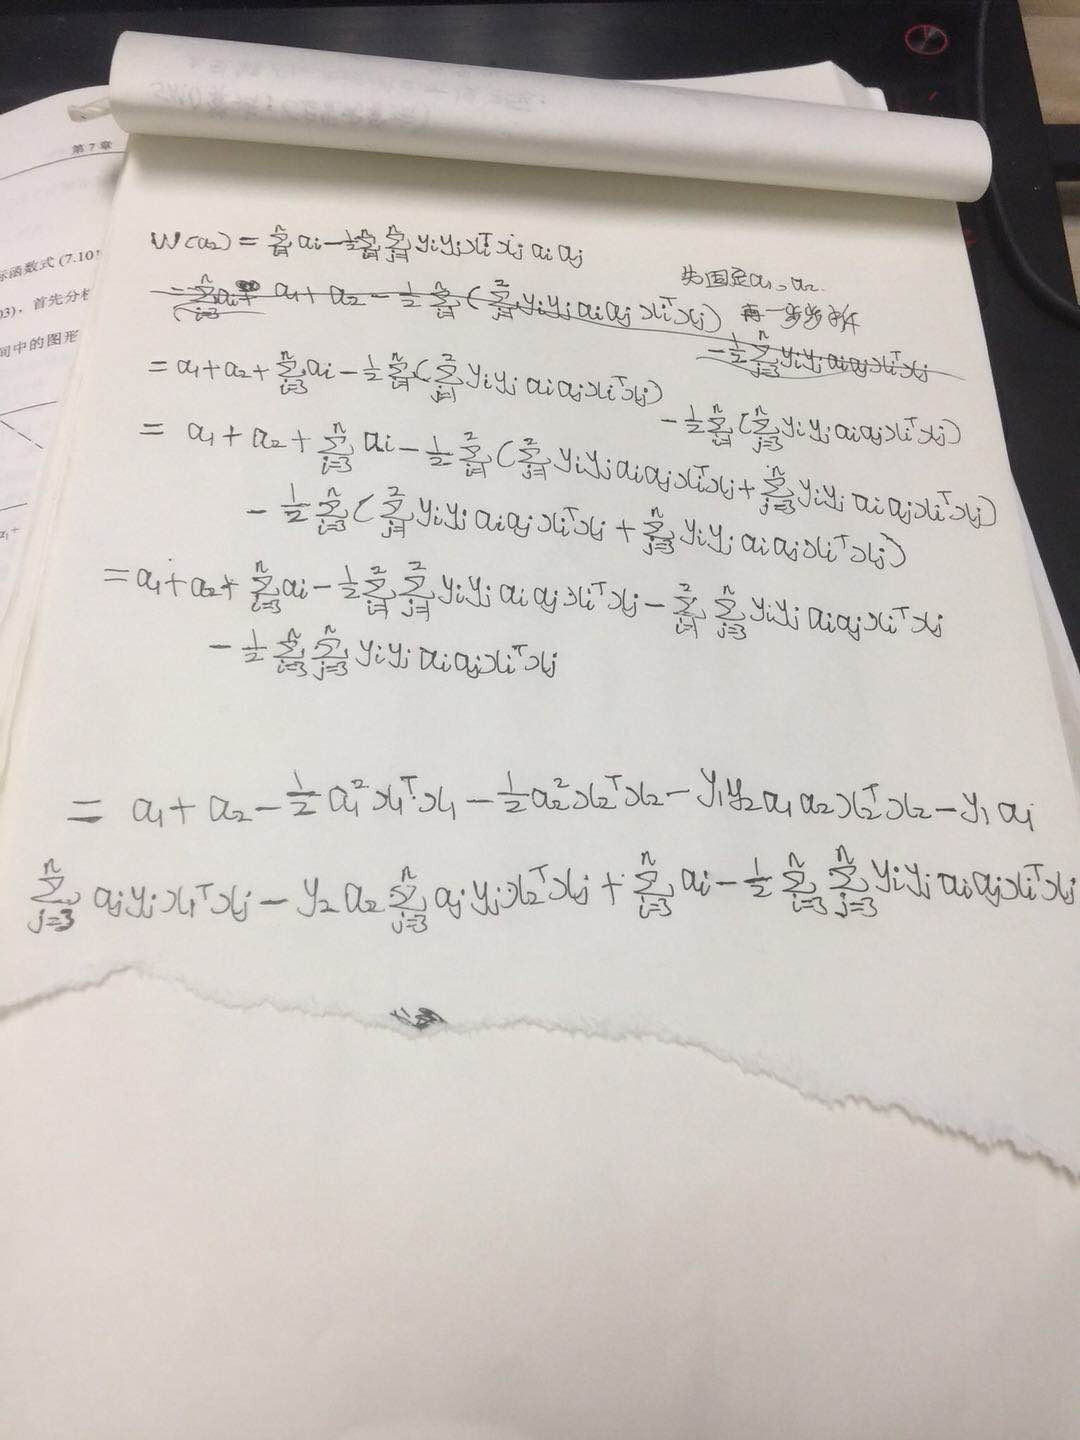 第7章
标函数式(7.101
03)，首先分析
间中的图形
W(a₂) = Σⁿᵢ₌₁ aᵢ - ½ Σⁿᵢ₌₁ Σⁿⱼ₌₁ yᵢyⱼxᵢᵀxⱼ aᵢaⱼ
先固定a₁, a₂.
= Σⁿᵢ₌₃ aᵢ + a₁ + a₂ - ½ Σⁿᵢ₌₁ (Σ²ⱼ₌₁ yᵢyⱼaᵢaⱼxᵢᵀxⱼ) 再一步步拆
- ½ Σⁿⱼ₌₃ yᵢyⱼaᵢaⱼxᵢᵀxⱼ
= a₁ + a₂ + Σⁿᵢ₌₃ aᵢ - ½ Σⁿᵢ₌₁ (Σ²ⱼ₌₁ yᵢyⱼaᵢaⱼxᵢᵀxⱼ)
- ½ Σⁿᵢ₌₁ (Σⁿⱼ₌₃ yᵢyⱼaᵢaⱼxᵢᵀxⱼ)
= a₁ + a₂ + Σⁿᵢ₌₃ aᵢ - ½ Σ²ᵢ₌₁ (Σ²ⱼ₌₁ yᵢyⱼaᵢaⱼxᵢᵀxⱼ + Σⁿⱼ₌₃ yᵢyⱼaᵢaⱼxᵢᵀxⱼ)
- ½ Σⁿᵢ₌₃ (Σ²ⱼ₌₁ yᵢyⱼaᵢaⱼxᵢᵀxⱼ + Σⁿⱼ₌₃ yᵢyⱼaᵢaⱼxᵢᵀxⱼ)
= a₁ + a₂ + Σⁿᵢ₌₃ aᵢ - ½ Σ²ᵢ₌₁ Σ²ⱼ₌₁ yᵢyⱼaᵢaⱼxᵢᵀxⱼ - Σ²ᵢ₌₁ Σⁿⱼ₌₃ yᵢyⱼaᵢaⱼxᵢᵀxⱼ
- ½ Σⁿᵢ₌₃ Σⁿⱼ₌₃ yᵢyⱼaᵢaⱼxᵢᵀxⱼ
= a₁ + a₂ - ½ a₁²x₁ᵀx₁ - ½ a₂²x₂ᵀx₂ - y₁y₂a₁a₂x₂ᵀx₂ - y₁a₁
Σⁿⱼ₌₃ aⱼyⱼx₁ᵀxⱼ - y₂a₂ Σⁿⱼ₌₃ aⱼyⱼx₂ᵀxⱼ + Σⁿᵢ₌₃ aᵢ - ½ Σⁿᵢ₌₃ Σⁿⱼ₌₃ yᵢyⱼaᵢaⱼxᵢᵀxⱼ